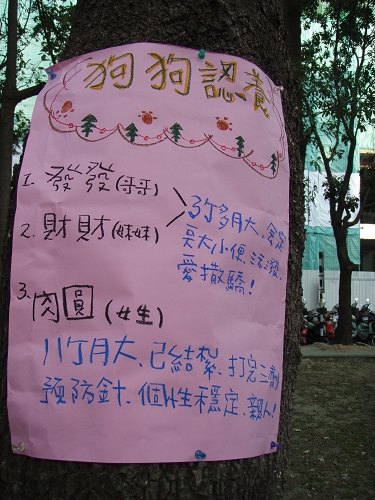 狗狗認養
1. 發發(哥哥)
2. 財財(妹妹)
3ㄎ多月大、會定
點大小便、活潑、
愛撒驕!
3. 肉圓(女生)
八ㄎ月大、已結紮、打完三劑
預防針、個性穩定、親人!